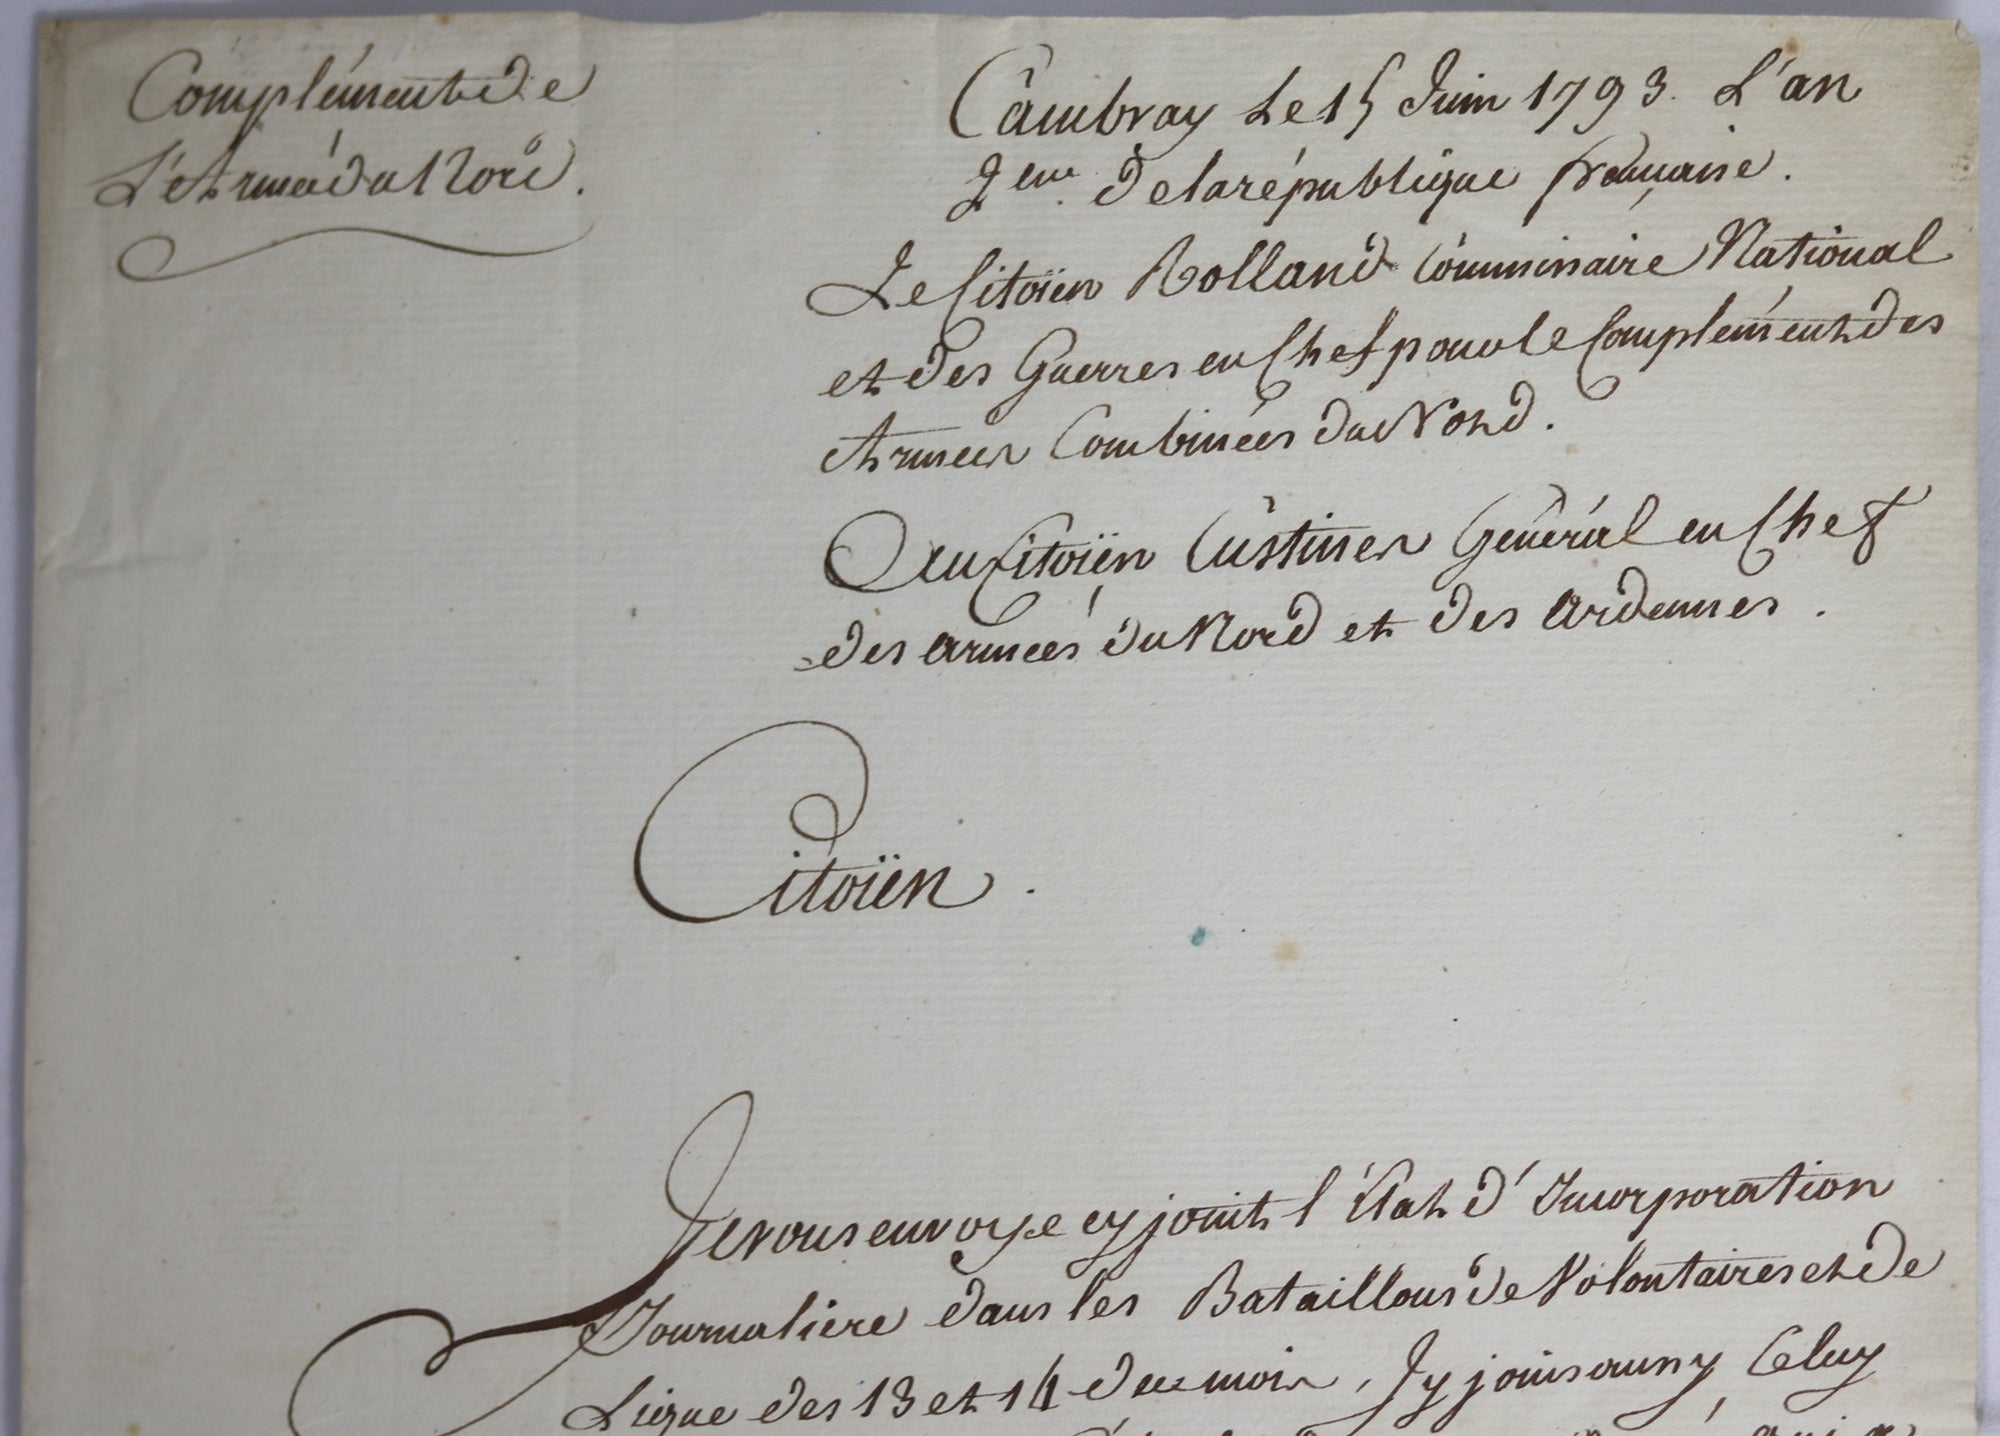 Complément de
L'Armée du Nord.
Cambray Le 15 Juin 1793. L'an
2eme. de la république française.
Le Citoïen Rolland Commissaire National
et des Guerres en Chef pour le Complément des
Armées Combinées du Nord.
Au Citoïen Custines Général en Chef
des armées du Nord et des ardennes.
Citoïen.
Je vous envoye cy joint l'État d'Incorporation
Journalière dans les Bataillons de Volontaires et de
Ligne des 13 et 14 du mois, J'y joins aussy Celuy